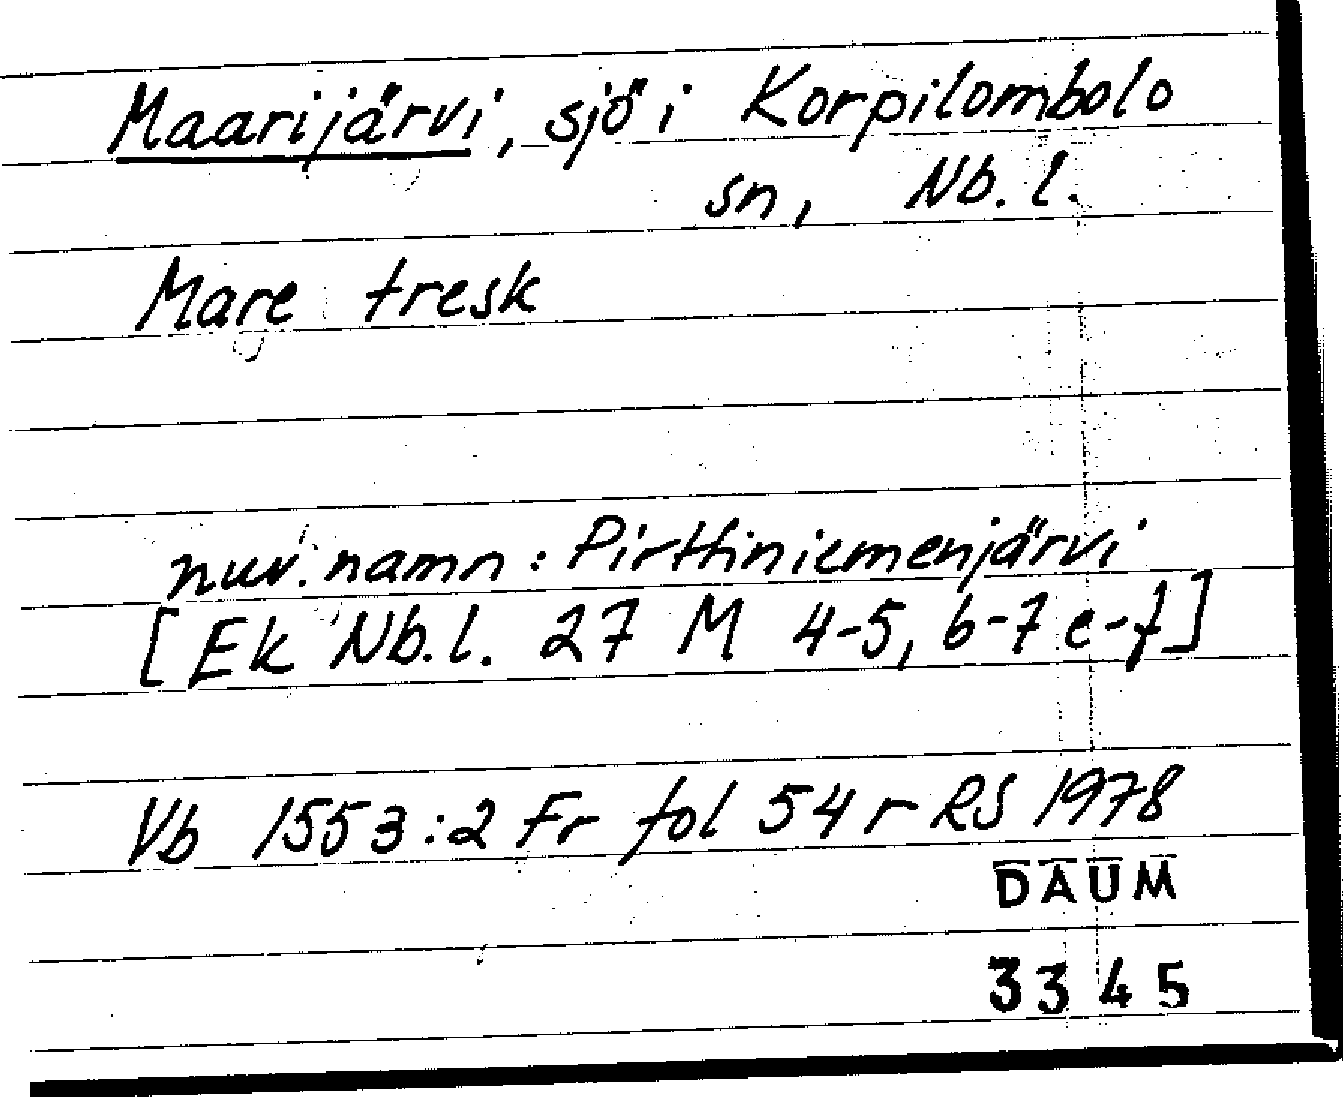 Maarijärvi, sjö i Korpilombolo
sn, Nb. l.
Mare tresk
nuv. namn: Pirttiniemenjärvi
[Ek Nb.l. 27 M 4-5, 6-7 e-f]
Vb 1553:2 Fr fol 54 r RS 1978
DAUM
3345